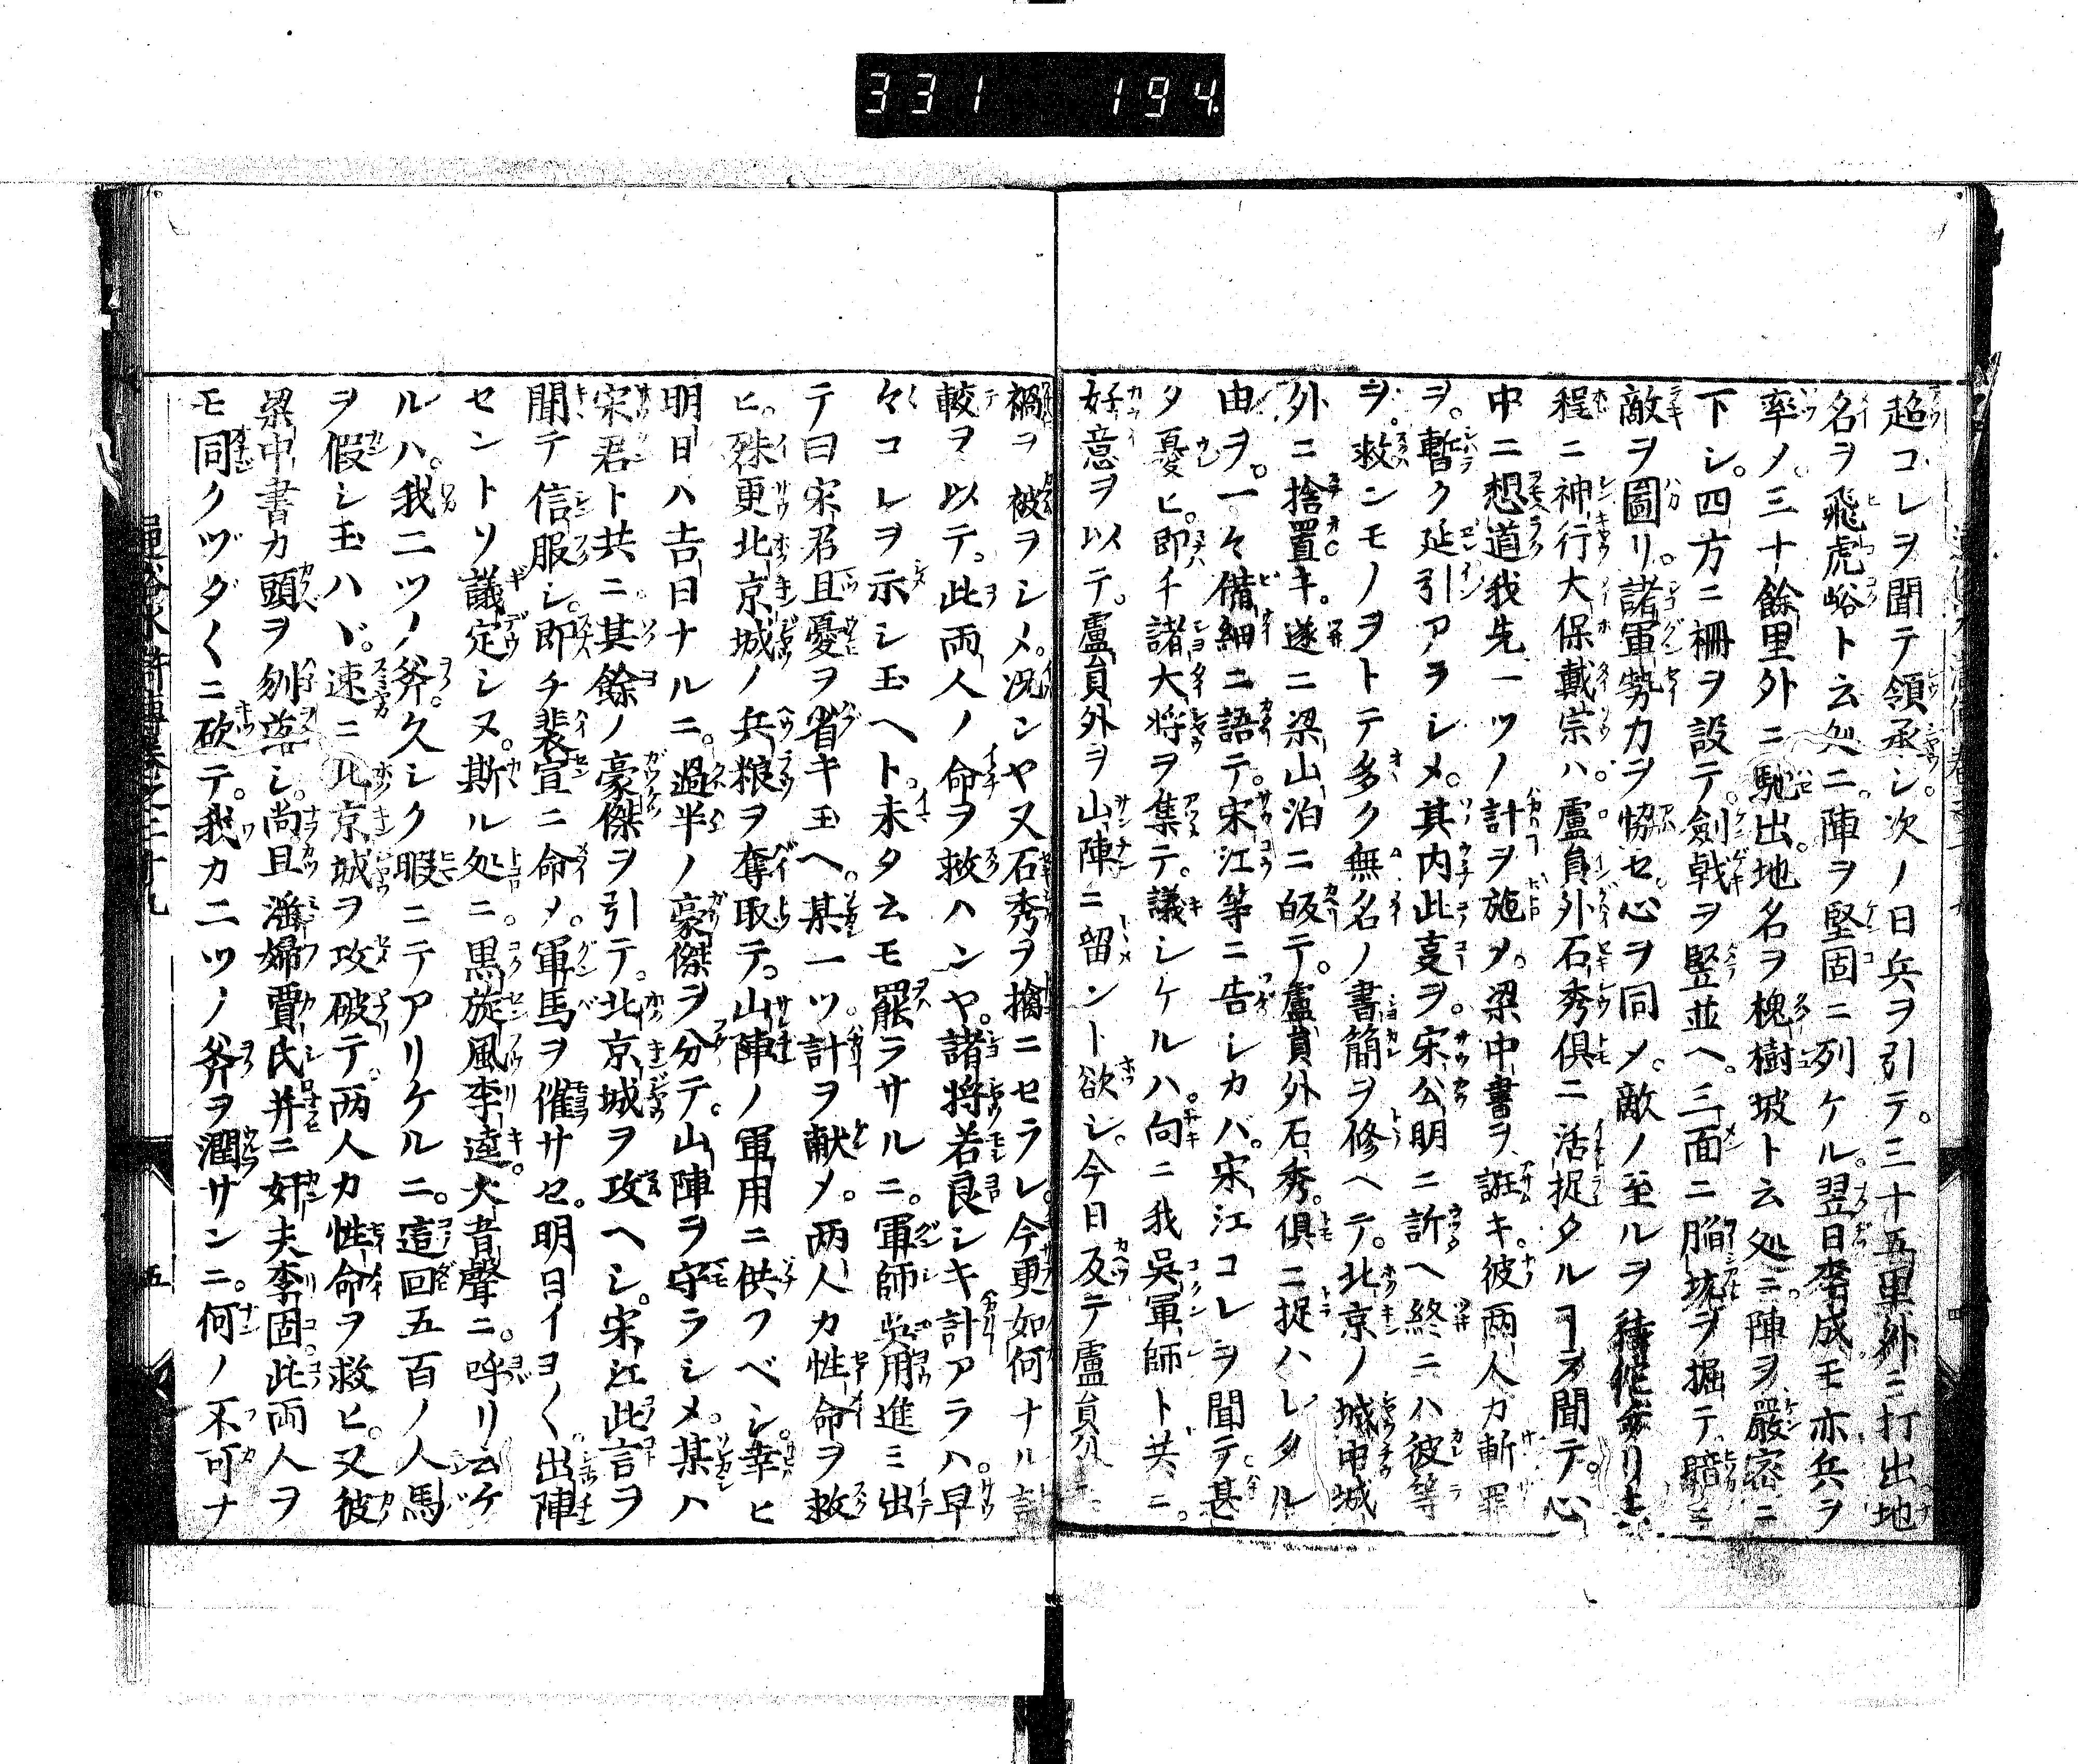 331 194
超コレヲ聞テ領承シ。次ノ日兵ヲ引テ。三十五里外ニ打出地
名ヲ飛虎峪ト云処ニ。陣ヲ堅固ニ列ケル。翌日李成モ亦兵ヲ
率メ。三十餘里外ニ馳出。地名ヲ槐樹坡ト云処ニ。陣ヲ嚴密ニ
下シ。四方ニ柵ヲ設テ。劍戟ヲ竪並ヘ。三面ニ陥坑ヲ掘テ。暗ニ
敵ヲ圖リ。諸軍勢力ヲ恊セ。心ヲ同メ。敵ノ至ルヲ待
程ニ神行大保戴宗ハ。盧員外石秀倶ニ活捉タルヿヲ聞テ。心
中ニ想道我先一ツノ計ヲ施メ。梁中書ヲ誑キ。彼两人カ斬罪
ヲ。暫ク延引アラシメ。其内此叓ヲ。宋公明ニ訴ヘ終ニハ彼等
ヲ。救ンモノヲトテ多ク無名ノ書簡ヲ修ヘテ。北京ノ城中城
外ニ捨置キ。遂ニ梁山泊ニ皈テ。盧員外石秀。倶ニ捉ハレタル
由ヲ。一々備細ニ語テ。宋江等ニ告シカバ。宋江コレヲ聞テ。甚
タ憂ヒ。即チ諸大将ヲ集テ。議シケルハ。向ニ我呉軍師ト共ニ。
好意ヲ以テ。盧員外ヲ山陣ニ留ント欲シ。今日反テ盧員外
禍ヲ被ヲシメ。况ンヤ又石秀ヲ擒ニセラレ。今更如何ナル計
較ヲ以テ。此両人ノ命ヲ救ハンヤ。諸将若良シキ計アラハ。早
々コレヲ示シ玉ヘト。未タ云モ罷ラサルニ。軍師呉用進ミ出
テ曰宋君且憂ヲ省キ玉ヘ。某一ツ計ヲ献メ。两人カ性命ヲ救
ヒ。殊更北京城ノ兵粮ヲ奪取テ。山陣ノ軍用ニ供フベシ。幸ヒ
明日ハ吉日ナルニ。過半ノ豪傑ヲ分テ。山陣ヲ守ラシメ。某ハ
宋君ト共ニ。其餘ノ豪傑ヲ引テ。北京城ヲ攻ヘシ。宋江此言ヲ
聞テ信服シ。即チ裴宣ニ命メ。軍馬ヲ催サセ。明日イヨ〱出陣
セントソ議定シヌ。斯ル処ニ。黒旋風李逵大音聲ニ。呼リ云ケ
ルハ。我二ツノ斧。久シク暇ニテアリケルニ。這回五百ノ人馬
ヲ假シ玉ハヾ。速ニ北京城ヲ攻破テ。两人カ性命ヲ救ヒ。又彼
梁中書カ頭ヲ刎落シ。尚且滛婦賈氏并ニ奸夫李固。此両人ヲ
モ同クヅダ〱ニ砍テ。我カ二ツノ斧ヲ潤サンニ。何ノ不可ナ
五